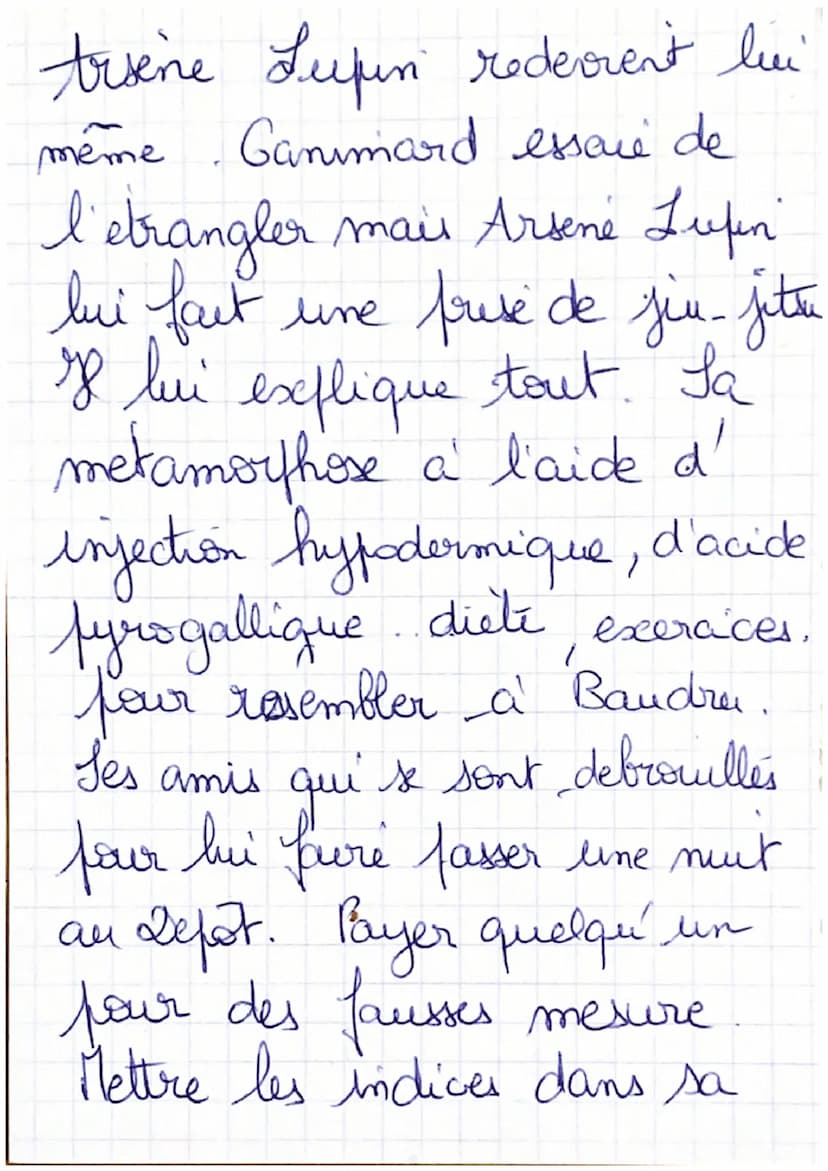 Arsène Lupin redevient lui
même. Ganimard essaie de
l'etrangler mais Arsene Lupin
lui fait une prise de jiu-jitsu
Il lui explique tout. Sa
metamorphose à l'aide d'
injection hypodermique, d'acide
pyrogallique.. diète, exercices.
pour resembler à Baudru.
Ses amis qui se sont debrouillés
pour lui faire passer une nuit
au Depôt. Payer quelqu'un
pour des fausses mesure.
Mettre les indices dans sa